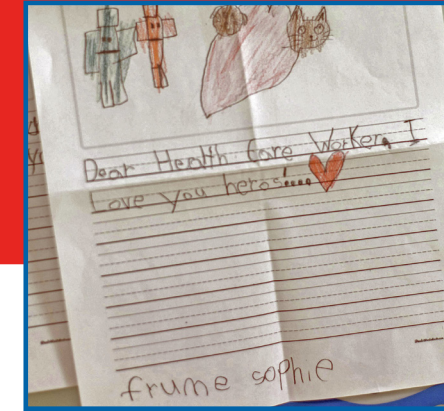 Dear Health Care Worker, I
Love you heros!....
frume sophie